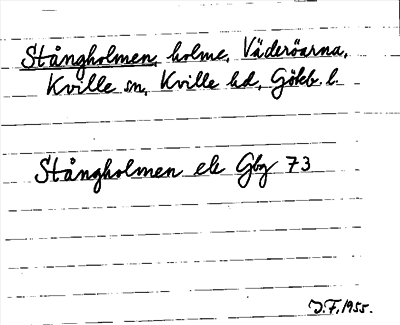 Stångholmen, holme, Väderöarna,
Kville sn, Kville hd, Göteb. l.
Stångholmen ek Gbg 73
J.F. 1955.